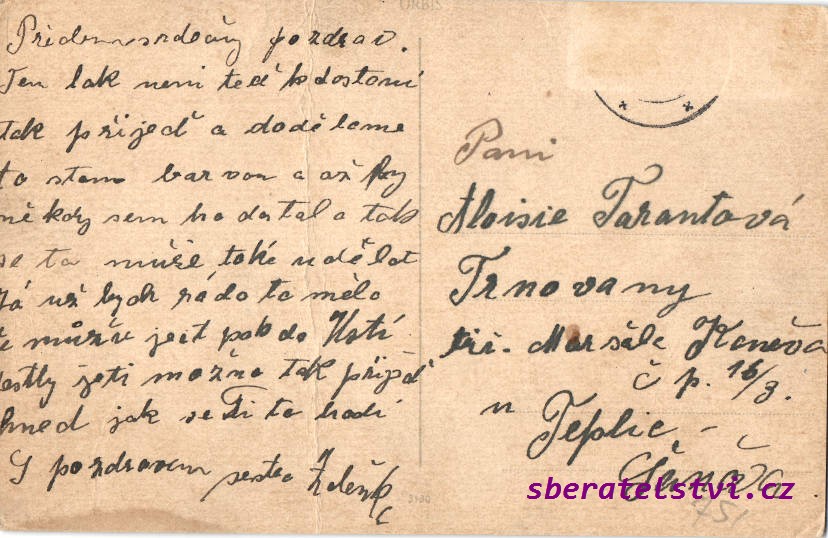 ORBIS
Přídemsrdečný pozdrav.
Ten lak neni teď k dostoní
tak přijeď a doděláme
to stem barvou a až by
někdy sem ho dostal a tak
se to může také udělat
Já už bych rádo to mělo
že můžu jeet pak do Ústí
jestly jeti možno tak přijeď
hned jak se Ti to hodí
S pozdravem sestra Zdeňk
Pani
Aloisie Tarantová
Trnovany
tři. Maršála Koněva
č p. 16/3.
u Teplic-
Šanova
751
sberatelstvi.cz